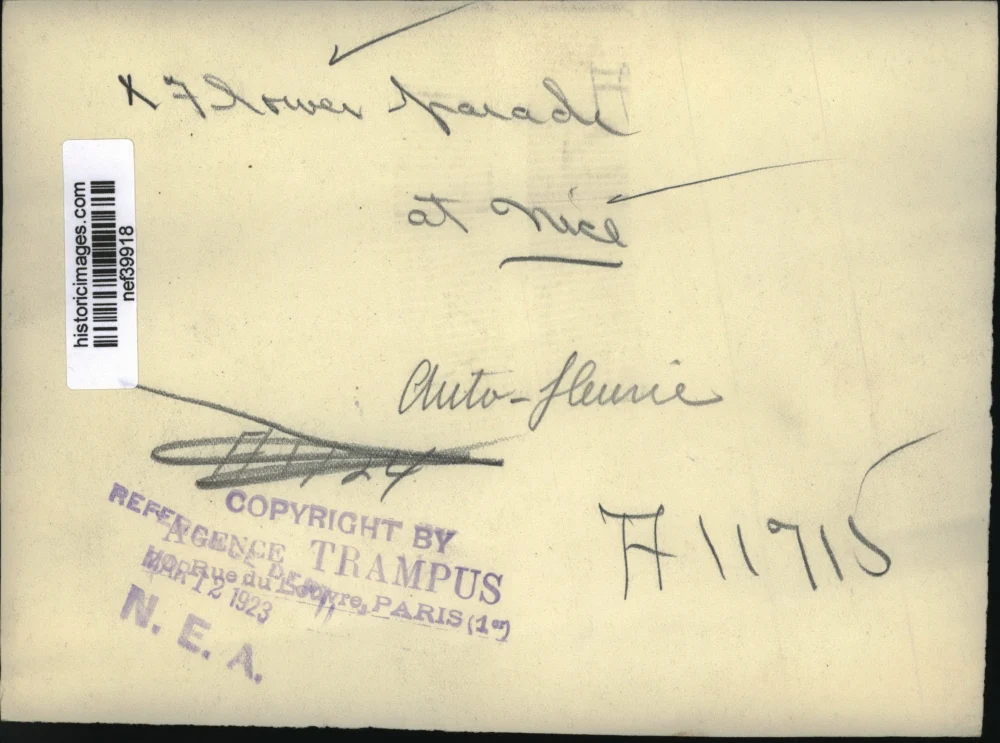 x Flower parade
at Nice
historicimages.com
nef39918
Auto-fleurie
COPYRIGHT BY
AGENCE TRAMPUS
Rue du Louvre, PARIS (1er)
REFERENCE DEPT.
MAR 12 1923
N. E. A.
A 11715